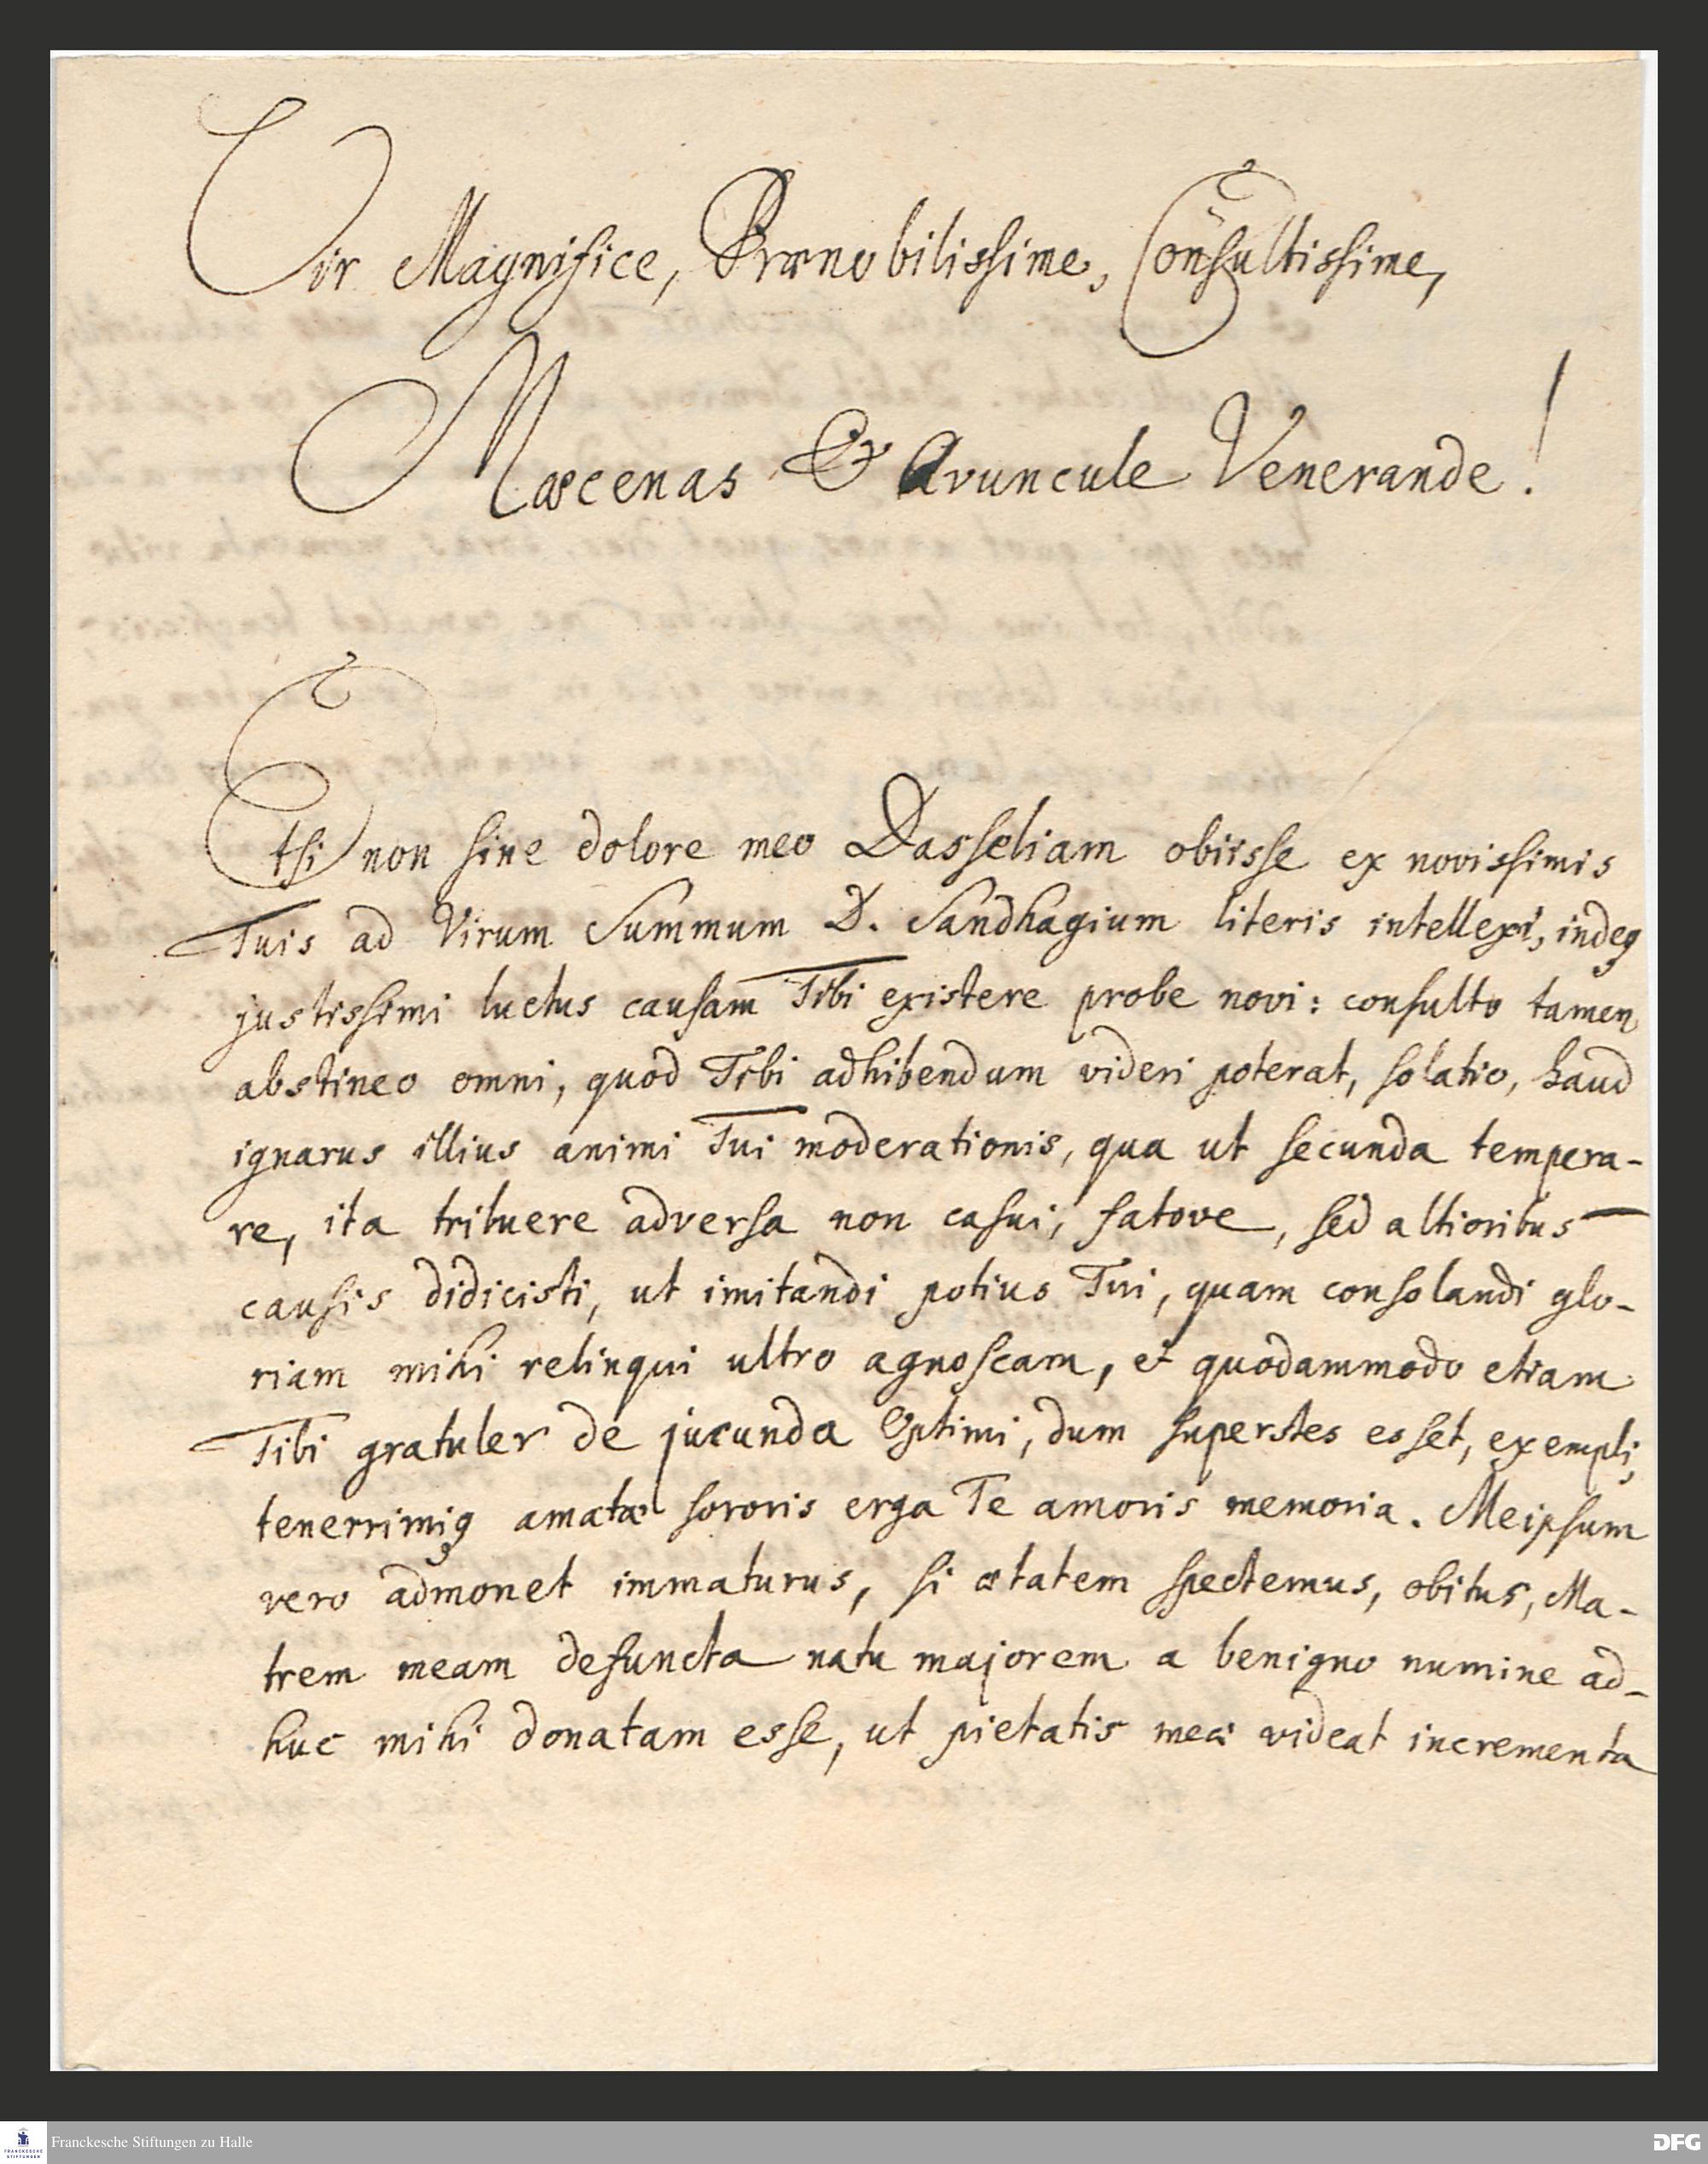 Vir Magnifice, Prænobilissime, Consultissime,
Mæcenas & Avuncule Venerande!
Etsi non sine dolore meo Dasseliam obiisse ex novissimis
Tuis ad Virum Summum D. Sandhagium literis intellexi, indeq́
justissimi luctus causam Tibi existere probe novi: consulto tamen
abstineo omni, quod Tibi adhibendum videri poterat, solatio, haud
ignarus illius animi Tui moderationis, qua ut secunda tempera-
re, ita tribuere adversa non casui, fatove, sed altioribus
causis didicisti, ut imitandi potius Tui, quam consolandi glo-
riam mihi relinqui ultro agnoscam, et quodammodo etiam
Tibi gratuler de jucunda Optimi, dum superstes esset, exempli,
tenerrimiq amatæ sororis erga Te amoris memoria. Meipsum
vero admonet immaturus, si ætatem spectemus, obitus, Ma-
trem meam defuncta natu majorem a benigno numine ad-
huc mihi donatam esse, ut pietatis meæ videat incrementa
Franckesche Stiftungen zu Halle
FRANCKESCHE
STIFTUNGEN
DFG